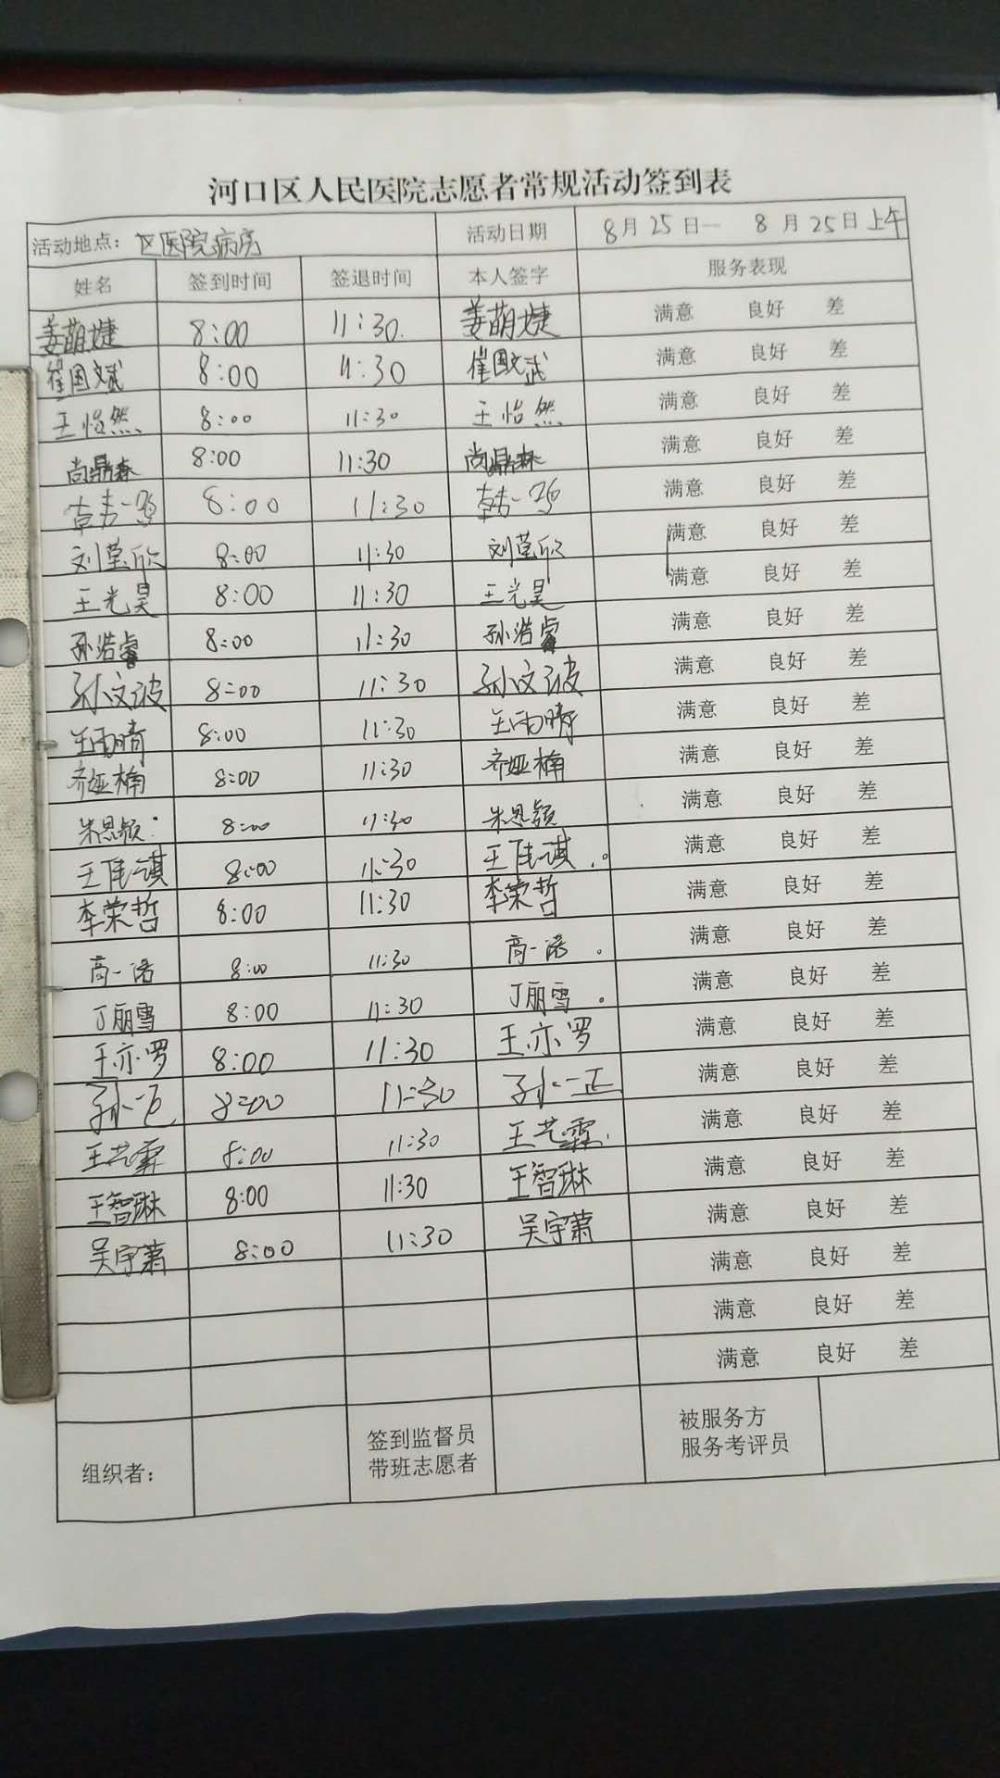 河口区人民医院志愿者常规活动签到表
活动地点：区医院病房 活动日期 8月25日— 8月25日上午
姓名 签到时间 签退时间 本人签字 服务表现
姜萌婕 8:00 11:30. 姜萌婕 满意 良好 差
崔国斌 8:00 11:30 崔国斌 满意 良好 差
王怡然 8:00 11:30 王怡然 满意 良好 差
尚鼎森 8:00 11:30 尚鼎森 满意 良好 差
韩一鸣 8:00 11:30 韩一鸣 满意 良好 差
刘莹欣 8:00 11:30 刘莹欣 满意 良好 差
王光昊 8:00 11:30 王光昊 满意 良好 差
孙浩睿 8:00 11:30 孙浩睿 满意 良好 差
孙文波 8:00 11:30 孙文波 满意 良好 差
王雨晴 8:00 11:30 王雨晴 满意 良好 差
齐娅楠 8:00 11:30 齐娅楠 满意 良好 差
朱恩颖 8:00 11:30 朱恩颖 满意 良好 差
王佳琪 8:00 11:30 王佳琪 满意 良好 差
李荣哲 8:00 11:30 李荣哲 满意 良好 差
商一诺 8:00 11:30 商一诺 满意 良好 差
丁丽雪 8:00 11:30 丁丽雪 满意 良好 差
王亦罗 8:00 11:30 王亦罗 满意 良好 差
孙一正 8:00 11:30 孙一正 满意 良好 差
王艺霖 8:00 11:30 王艺霖 满意 良好 差
王智琳 8:00 11:30 王智琳 满意 良好 差
吴宇萧 8:00 11:30 吴宇萧 满意 良好 差
满意 良好 差
满意 良好 差
满意 良好 差
组织者： 签到监督员 被服务方
带班志愿者 服务考评员